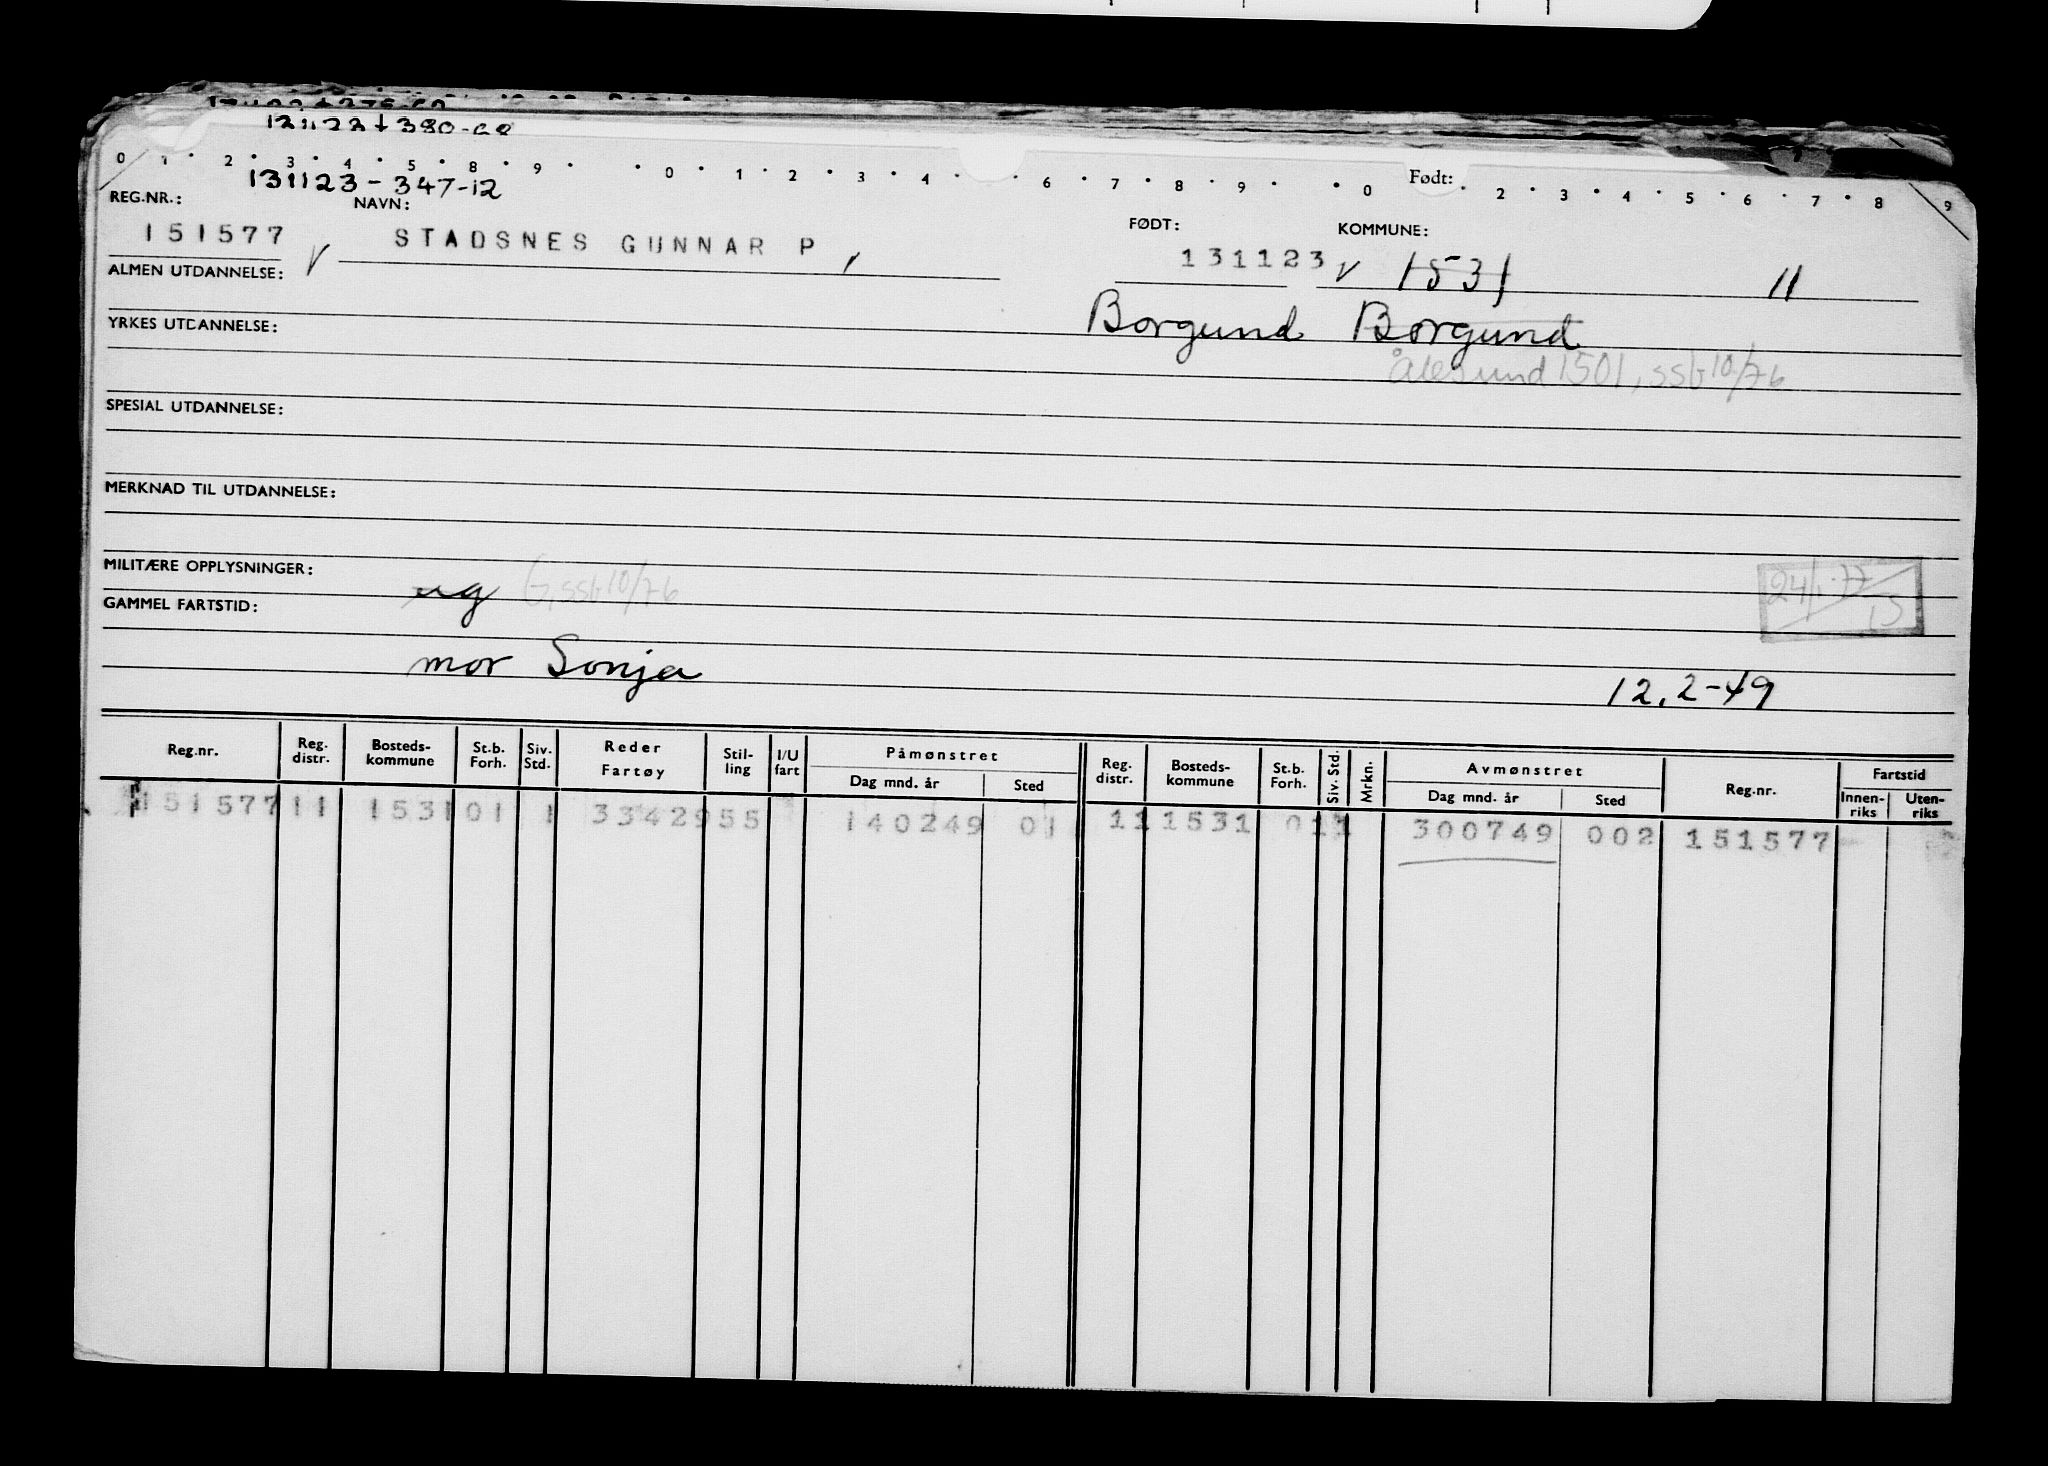 131123-347-12
0 1 2 3 4 5 8 9 0 1 2 3 4 6 7 8 9 0 Født: 2 3 4 5 6 7 8 9
REG.NR.: NAVN: FØDT: KOMMUNE:
151577 STADSNES GUNNAR P 131123 1531 11
ALMEN UTDANNELSE:
Borgund Borgund
YRKES UTDANNELSE:
Ålesund 1501, SSb 10/76
SPESIAL UTDANNELSE:
MERKNAD TIL UTDANNELSE:
MILITÆRE OPPLYSNINGER:
ug G, SSb 10/76
GAMMEL FARTSTID:
mor Sonja 12.2-49
Reg.nr. Reg. distr. Bosteds-kommune St.b. Forh. Siv. Std. Reder Fartøy Stil-ling I/U fart Påmønstret Dag mnd. år Sted Reg. distr. Bosteds-kommune St.b. Forh. Siv. Std. Mrkn. Avmønstret Dag mnd. år Sted Reg.nr. Fartstid Innen-riks Uten-riks
151577 11 1531 01 1 33429 55 140249 01 11 1531 01 1 300749 002 151577